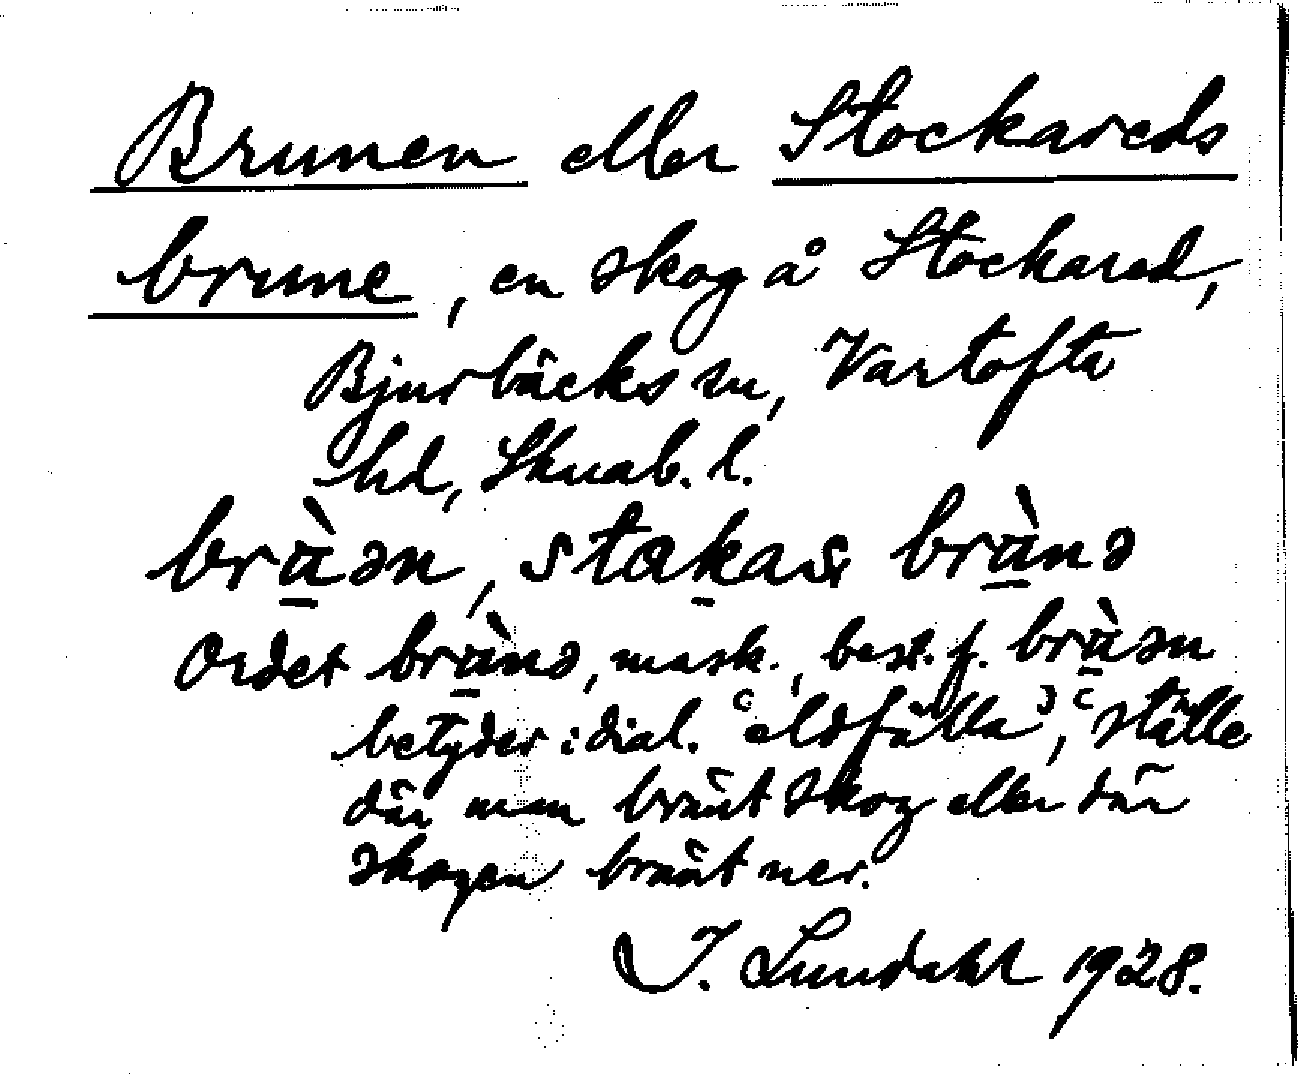 Brunen eller Stockareds
brune, en skog å Stockared,
Bjurbäcks sn, Vartofta
hd, Skarab. l.
brὰ̱ən, stak̠as brὰ̱nə
Ordet brὰ̱nə, mask., best. f. brὰ̱ən
betyder i dial. 'eldfälla', 'ställe
där man bränt skog eller där
skogen bränt ner.
I. Lundahl 1928.